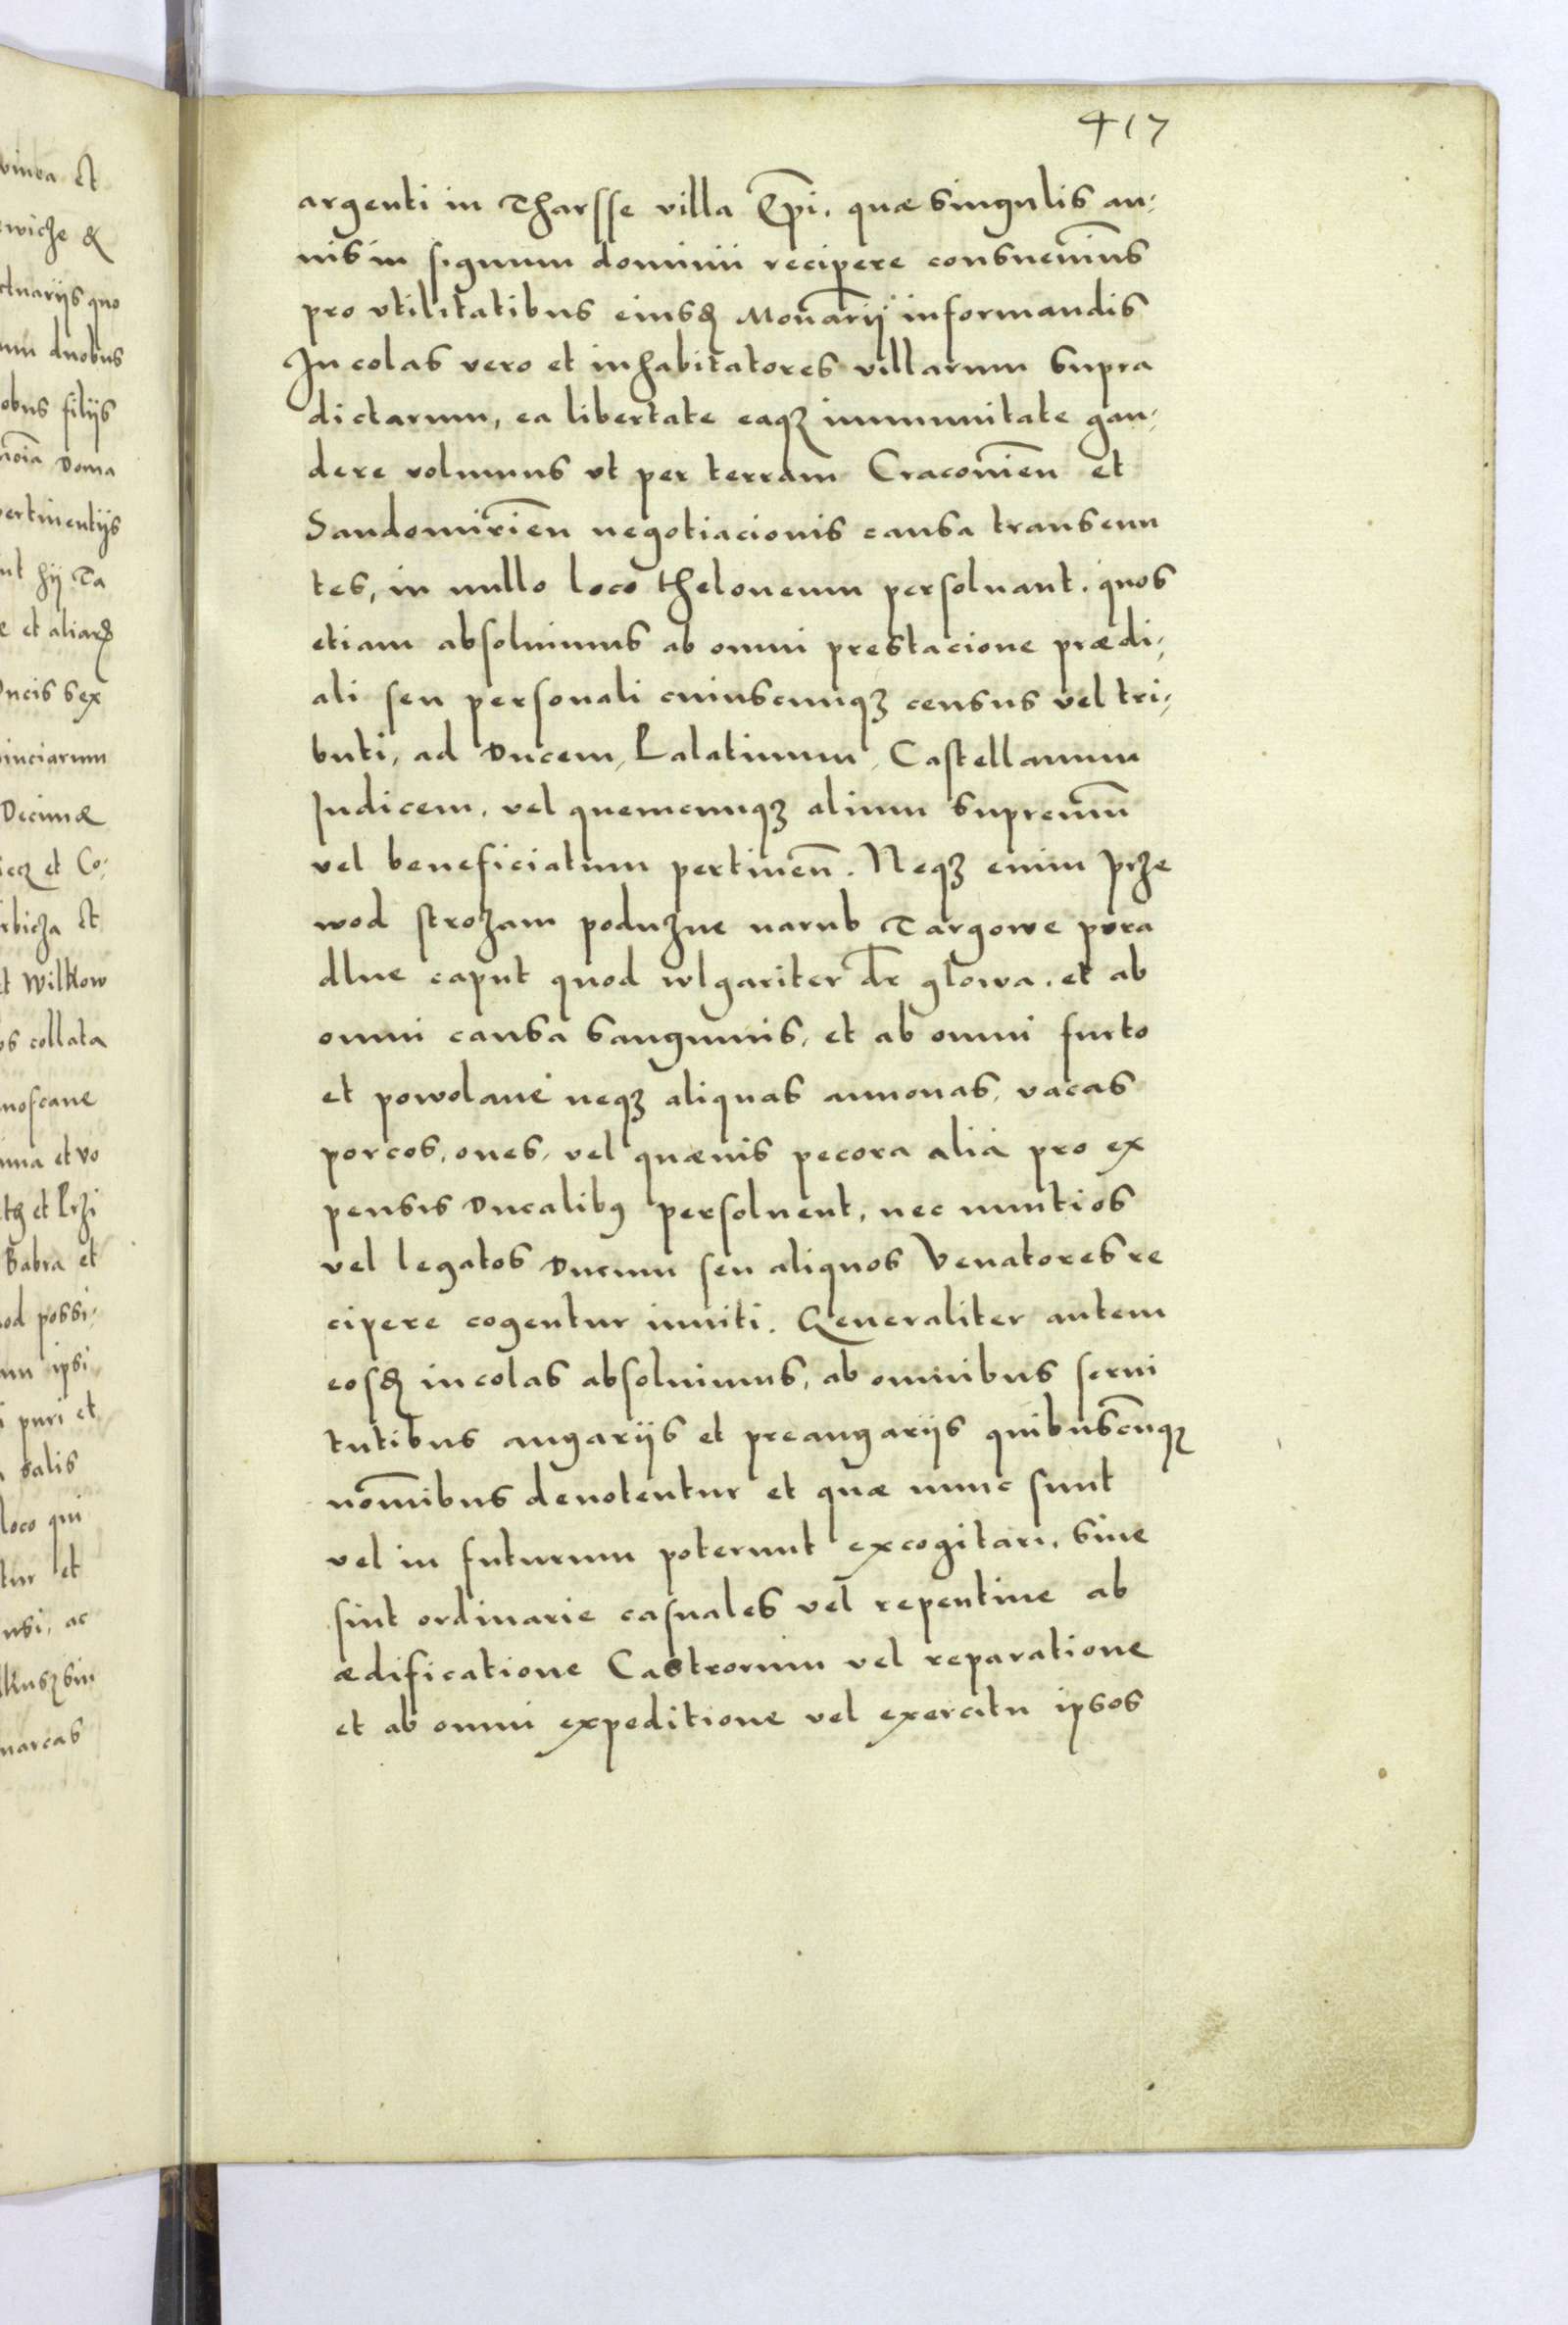 417
argenti in Tharsse villa Ep̄i. quæ singulis an-
nis in signum dominii recipere consuevim̄us
pro vtilitatibus eiusdꝫ Mon̄arij informandis
Incolas vero et inhabitatores villarum supra
dictarum, ea libertate eaqꝫ immunitate gau-
dere volumus vt per terram Cracovien̄ et
Sandomirien̄ negotiacionis causa transeun
tes, in nullo loco theloneum persoluant. quos
etiam absoluimus ab omni prestacione prædi-
ali seu personali cuiuscunqꝫ census vel tri-
buti, ad Ducem, Palatinum, Castellanum
Iudicem, vel quemcunqꝫ alium supremū
vel beneficiatum pertinen̄. Neqꝫ enim prze
wod strozam poduzne narub Targowe pora
dlne caput quod wlgariter dr̄ glowa. et ab
omni causa sanguinis, et ab omni furto
et powolane neqꝫ aliquas annonas, vacas
porcos, oues, vel quævis pecora alia pro ex
pensis Ducalibꝰ persoluent, nec nuntios
vel legatos Ducum seu aliquos Venatores re
cipere cogentur inuiti. Generaliter autem
eosdꝫ incolas absoluimus, ab omnibus serui
tutibus angarijs et preangarijs quibuscūqꝫ
nom̄ibus denotentur et quæ nunc sunt
vel in futurum poterunt excogitari, siue
sint ordinarie casuales vel repentine ab
ædificatione Castrorum vel reparatione
et ab omni expeditione vel exercitu ipsos